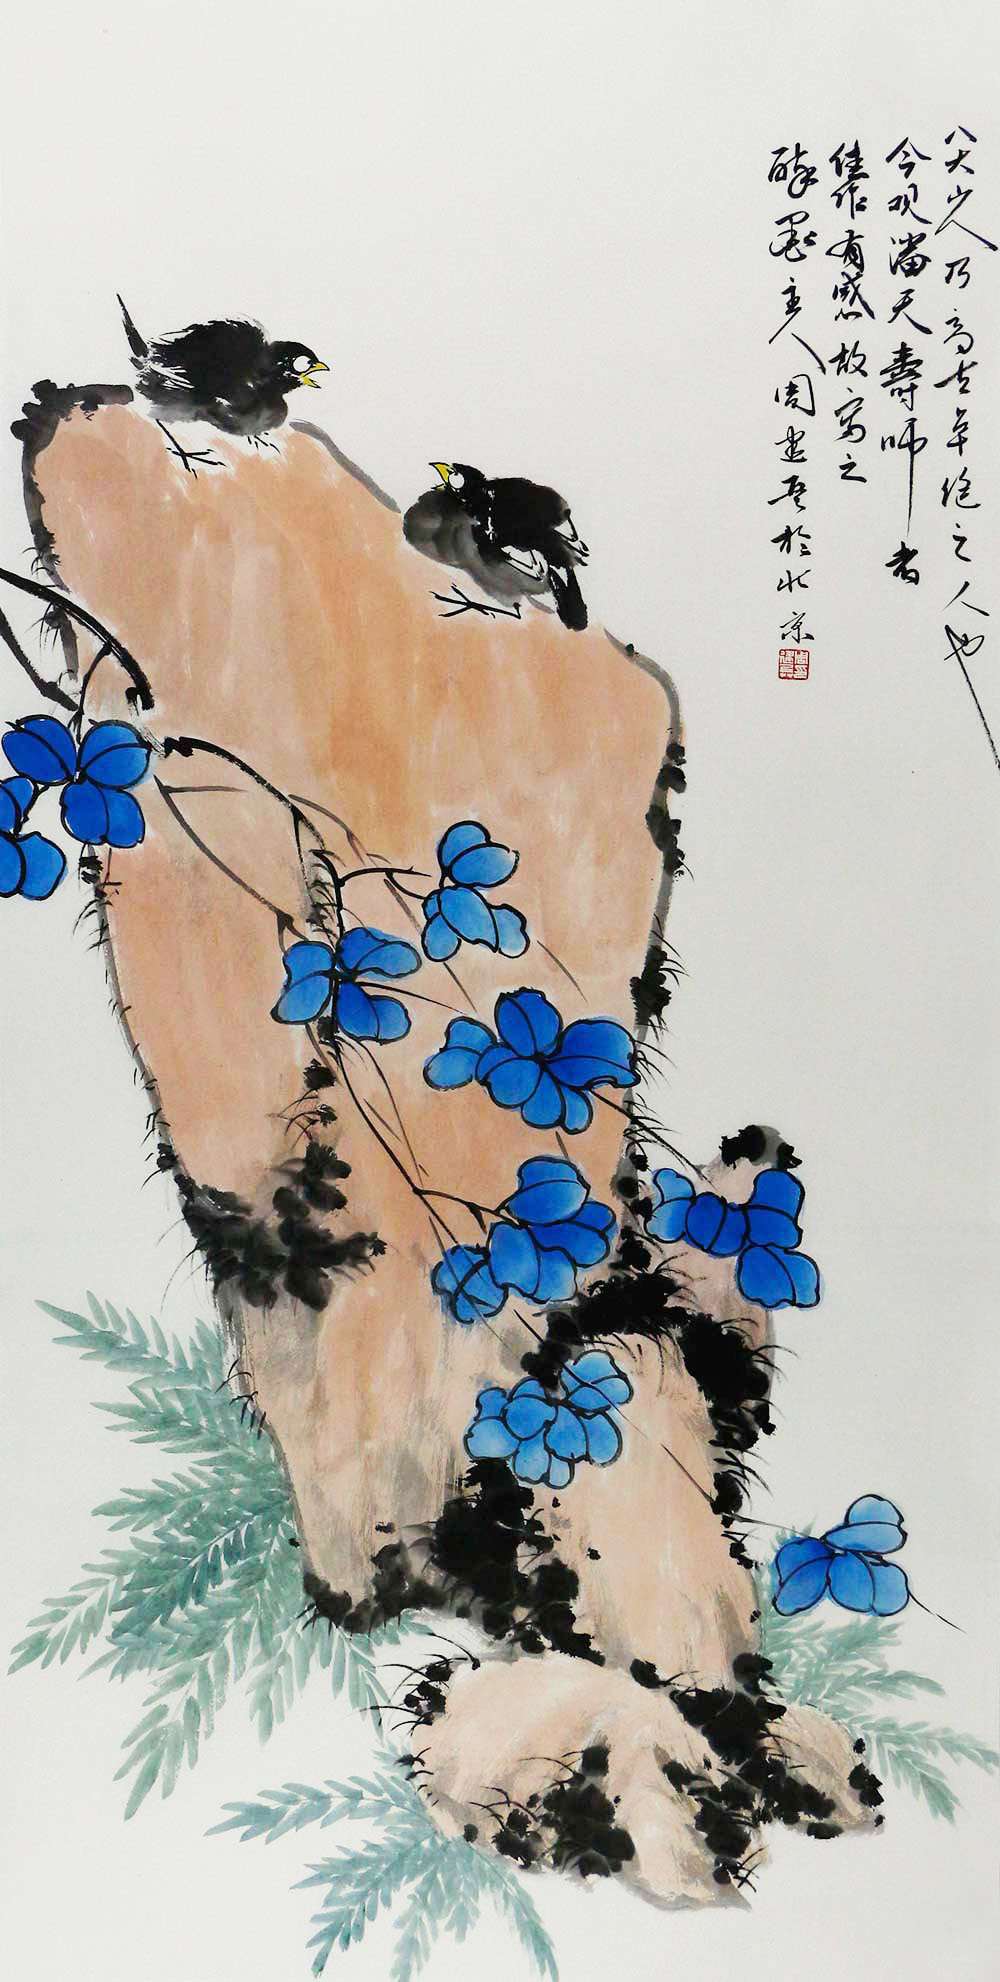 八大山人乃高古卓绝之人也
今观潘天壽师者
佳作有感故写之
醉墨主人周建吾於北京